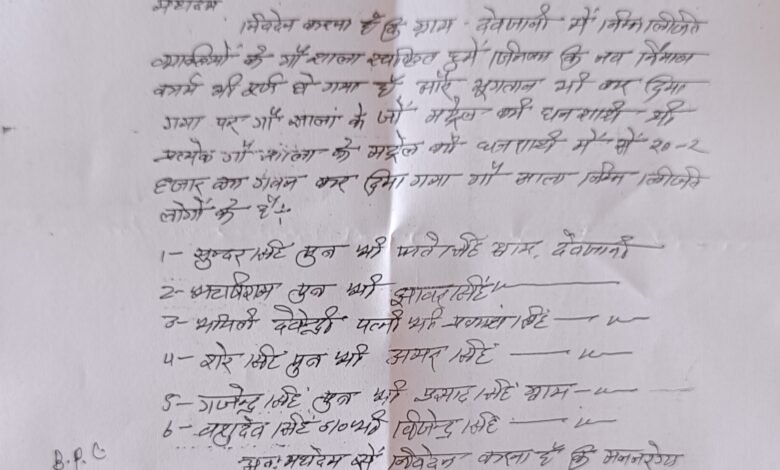 महोदय
निवेदन करना है कि ग्राम - देवजानी में निम्न लिखित
व्यक्तियों के गौ शाला स्वीकृत हुये जिनका कि नव निर्माण
कार्य भी पूर्ण हो गया है और भुगतान भी कर दिया
गया पर गौ शाला के जो मट्रेल की धनराशी थी
प्रत्येक गौ शाला के मट्रेल की धनराशी में से 20-2
हजार का गबन कर दिया गया गौ शाला निम्न लिखित
लोगों के है÷
1- सुन्दर सिंह पुत्र श्री फते सिंह ग्राम, देवजानी
2- पुत्र श्री झावर सिंह —〃—
3- श्रीमती देवेन्द्री पत्नी श्री प्रकाश सिंह —〃—
4- शेर सिंह पुत्र श्री अमर सिंह —〃—
5- गजेन्द्र सिंह पुत्र श्री प्रसाद सिंह ग्राम —〃—
6- वसुदेव सिंह S/o श्री विजेन्द्र सिंह —〃—
अतः महोदय से निवेदन करना है कि मनरेगा
B.P.C